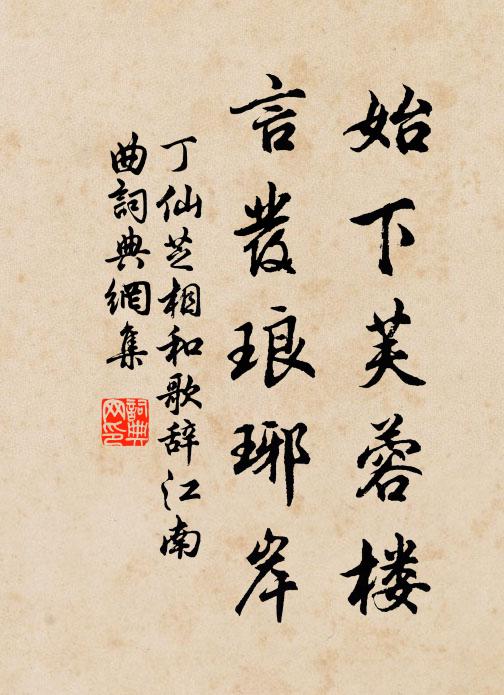 始下芙蓉楼
言發琅琊岸
丁仙芝相和歌辞江南
曲詞典網集
詞典
网印